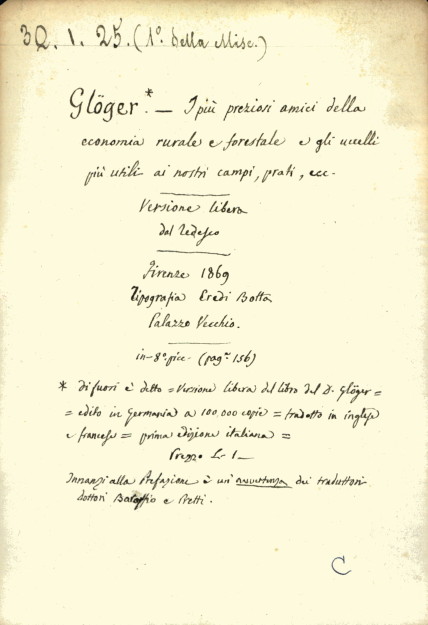 3Q. 1. 25. (1º. della Misc.)
Glöger.* — I più preziosi amici della
economia rurale e forestale e gli uccelli
più utili ai nostri campi, prati, ecc.
Versione libera
dal Tedesco
Firenze 1869
Tipografia Eredi Botta
Palazzo Vecchio.
in-8º picc. (pag.ⁿ 156)
* Di fuori è detto = Versione libera del libro del D. Glöger =
= edito in Germania a 100,000 copie = tradotto in inglese
e francese = prima edizione italiana =
Prezzo L. 1—
Innanzi alla Prefazione è un' avvertenza dei traduttori
dottori e
C